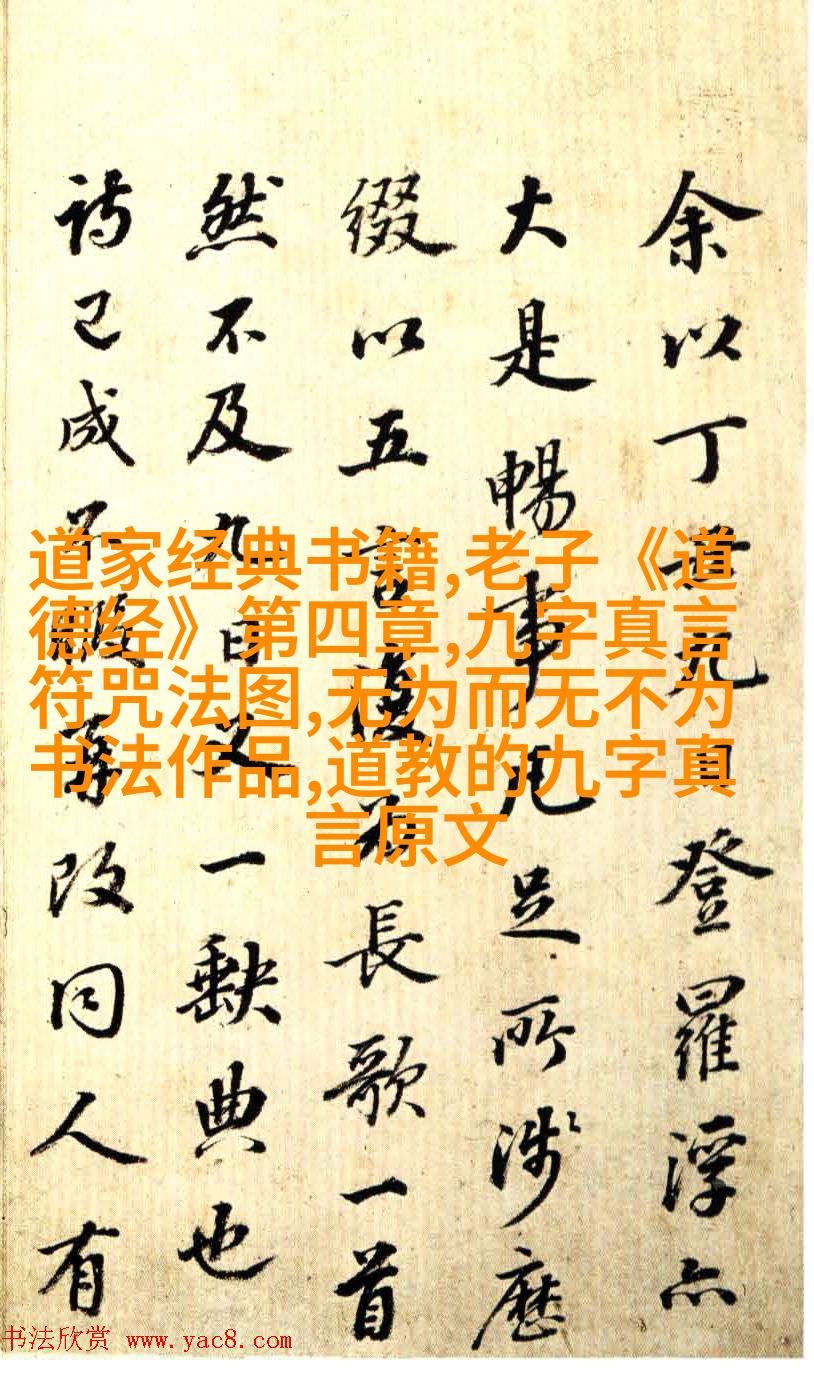 余以丁丑九日登羅浮亦
大是暢事凡足所涉歷
綴以五言復為長歌一首
然不及九日之一缺典也
詩已成不暇改同人有
道家经典书籍,老子《道
德经》第四章,九字真言
符咒法图,无为而无不为
书法作品,道教的九字真
言原文
书法欣赏 www.yac8.com